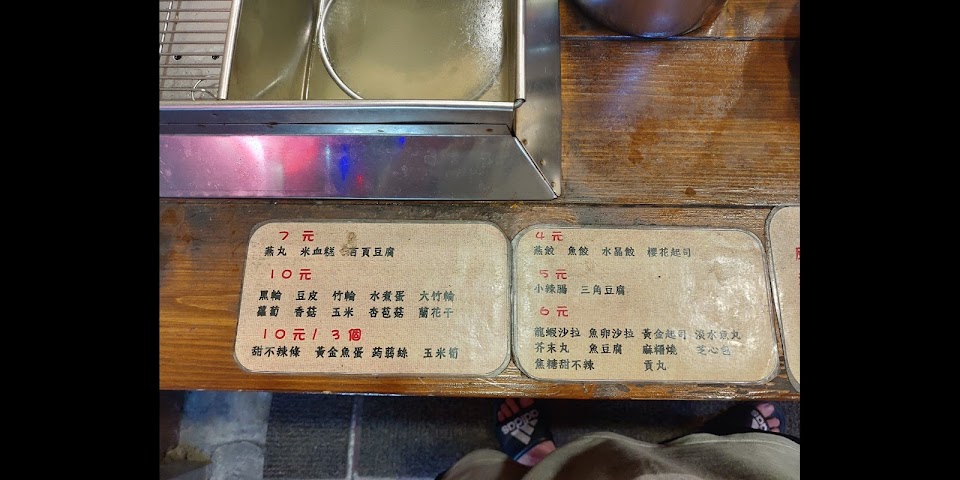 7元
燕丸 米血糕 百頁豆腐
10元
黑輪 豆皮 竹輪 水煮蛋 大竹輪
蘿蔔 香菇 玉米 杏苞菇 蘭花干
10元/3個
甜不辣條 黃金魚蛋 蒟蒻絲 玉米筍
4元
燕餃 魚餃 水晶餃 櫻花起司
5元
小辣腸 三角豆腐
6元
龍蝦沙拉 魚卵沙拉 黃金起司 淡水魚丸
芥末丸 魚豆腐 麻糬燒 芝心包
焦糖甜不辣 貢丸
adidas